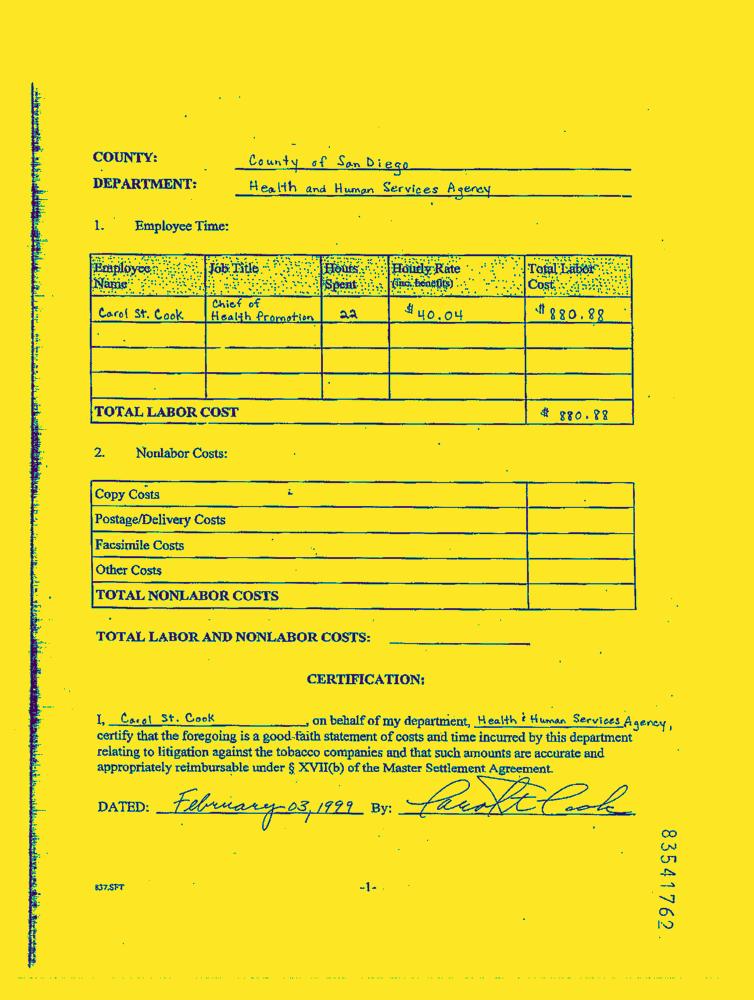 COUNTY: County of San Diego
DEPARTMENT: Health and Human Services Agency
1. Employee Time:
Employee Name Job Title Hours Spent Hourly Rate (inc. benefits) Total Labor Cost
Carol St. Cook Chief of Health Promotion 22 $40.04 $880.88
TOTAL LABOR COST $ 880.88
2. Nonlabor Costs:
Copy Costs
Postage/Delivery Costs
Facsimile Costs
Other Costs
TOTAL NONLABOR COSTS
TOTAL LABOR AND NONLABOR COSTS:
CERTIFICATION:
I, Carol St. Cook, on behalf of my department, Health & Human Services Agency,
certify that the foregoing is a good-faith statement of costs and time incurred by this department
relating to litigation against the tobacco companies and that such amounts are accurate and
appropriately reimbursable under § XVII(b) of the Master Settlement Agreement.
DATED: February 03, 1999 By: Carol St Cook
837.SFT
-1-
83541762